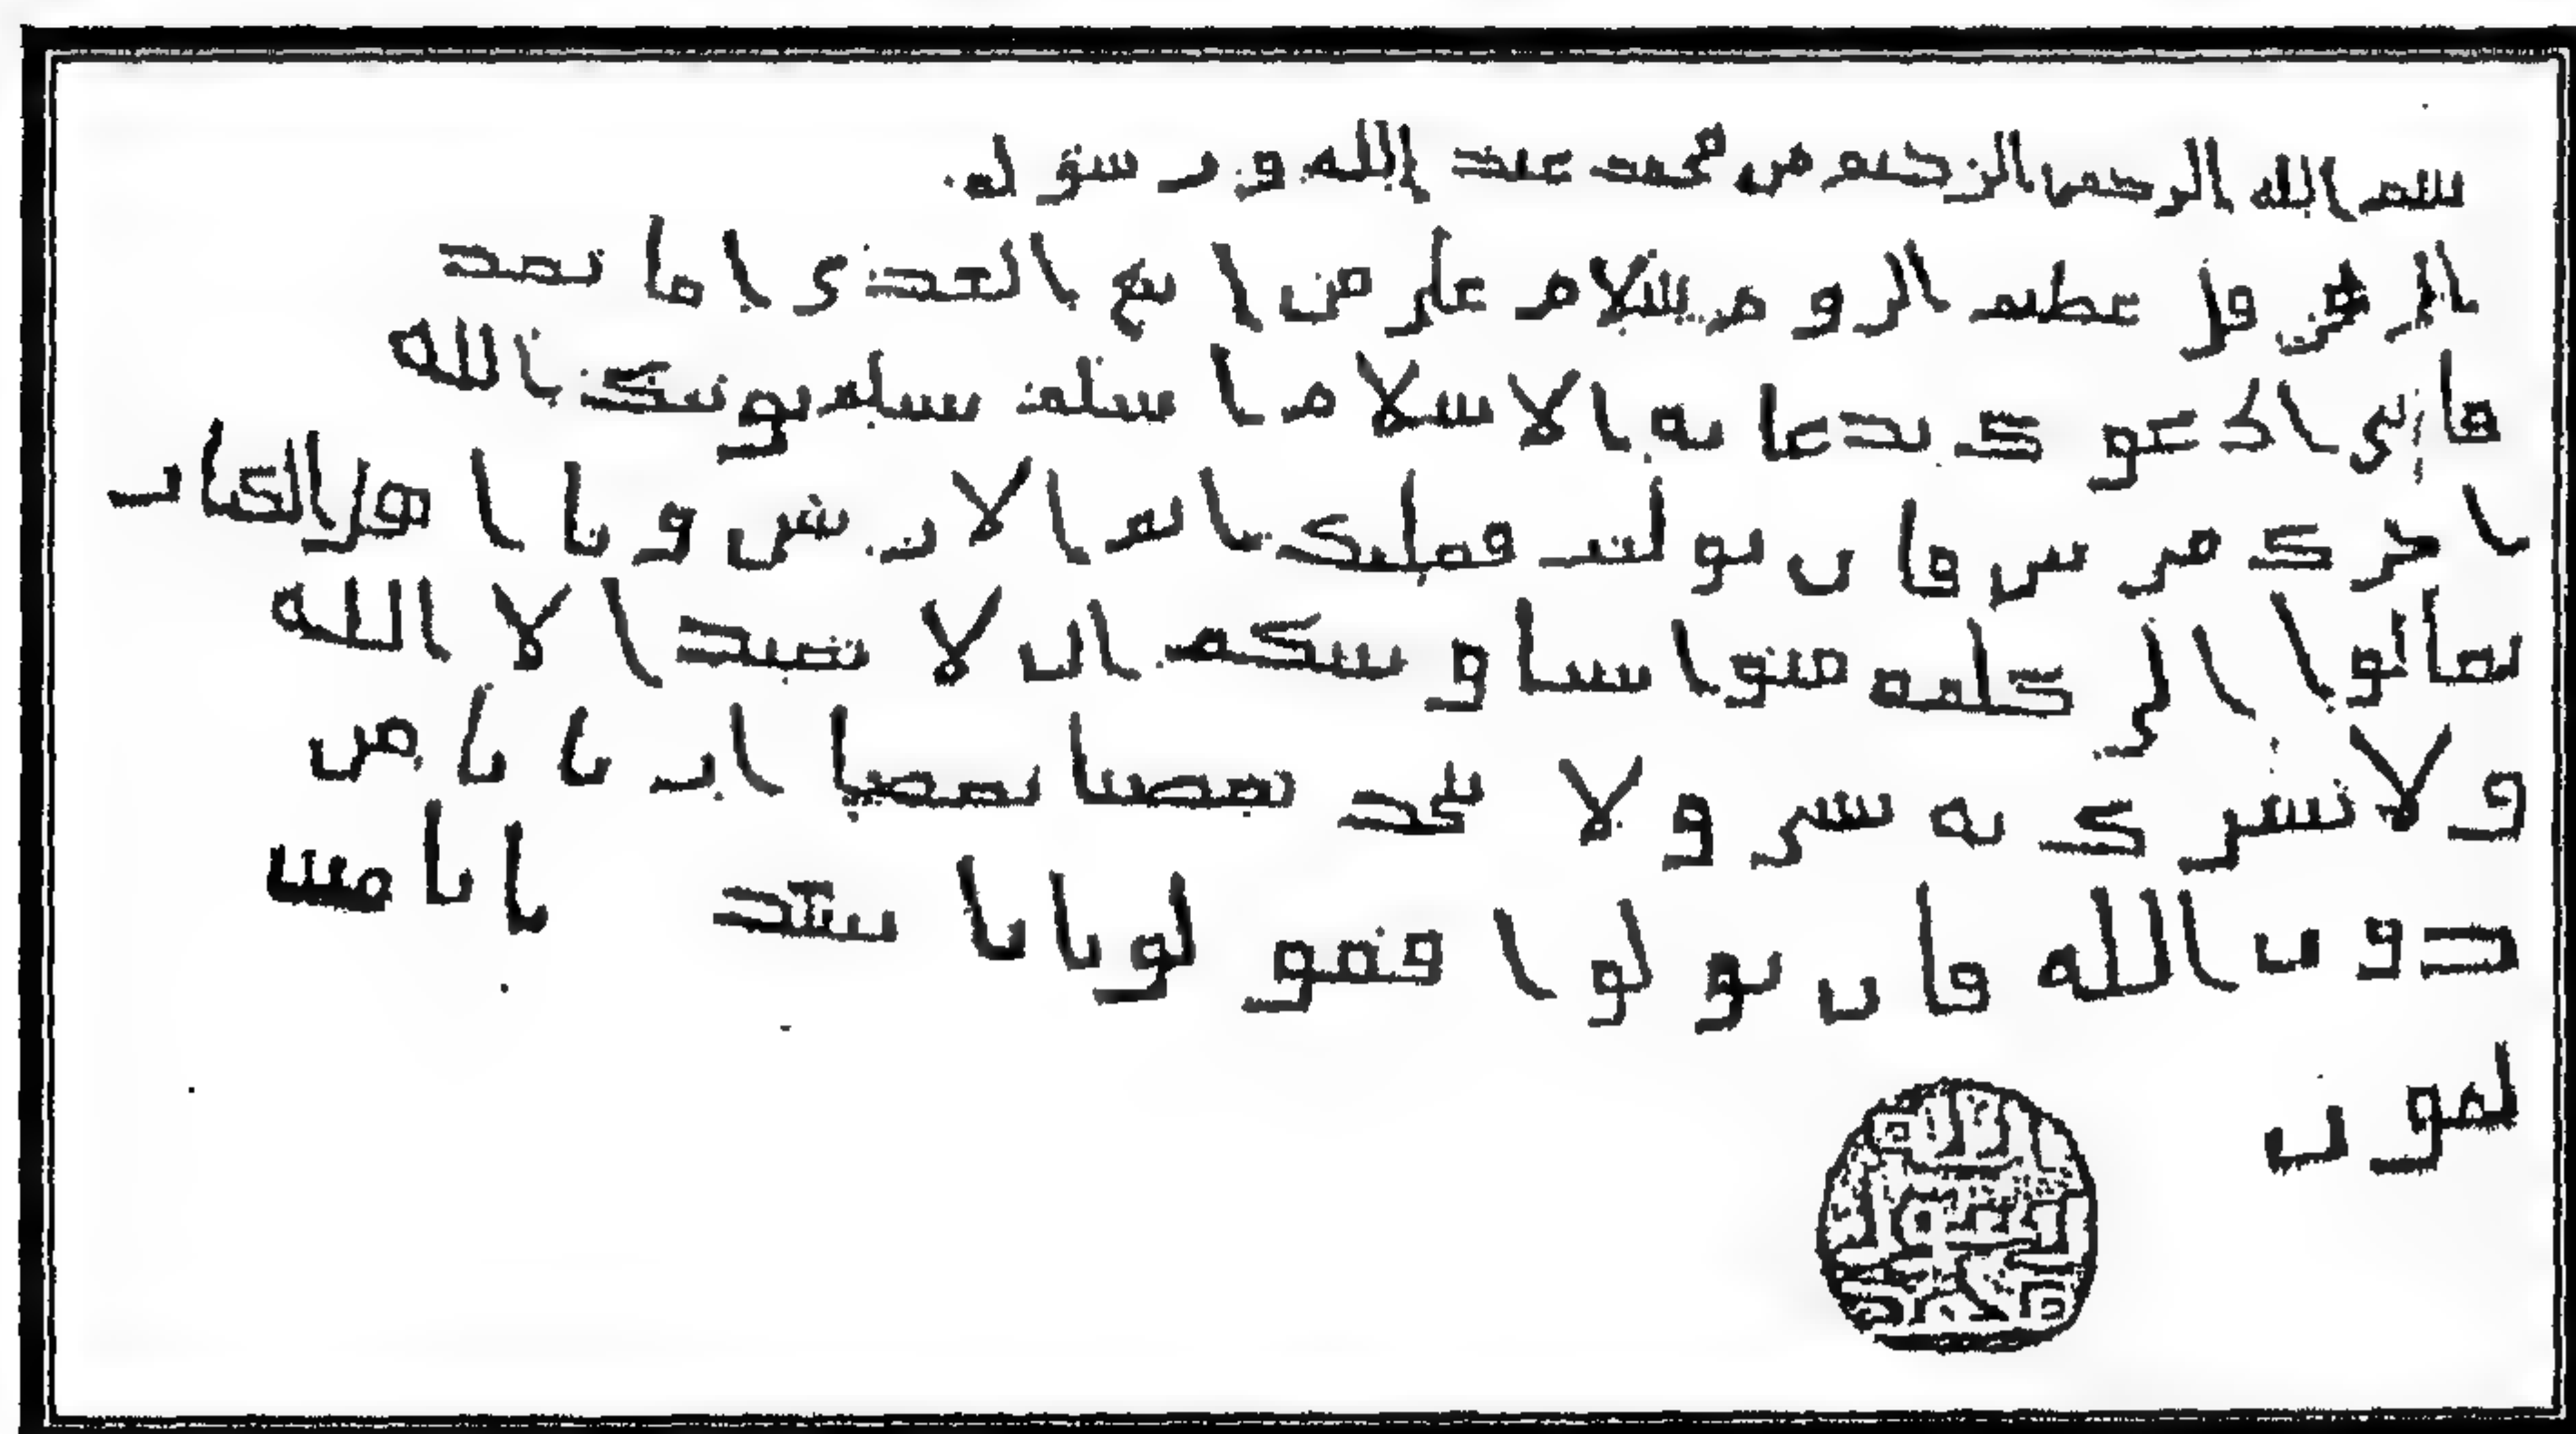 بسم الله الرحمن الرحيم من محمد عبد الله و رسوله
الى هرقل عظيم الروم سلام على من اتبع الهدى اما بعد
فاني ادعوك بدعايه الاسلام اسلم تسلم يوتيك الله
اجرك مرتين فان توليت فعليك اثم الاريسين ويا اهل الكتاب
تعالوا الى كلمه سوا بيننا وبينكم ان لا نعبد الا الله
ولا نشرك به شى ولا يتخذ بعضنا بعضا اربابا من
دون الله فان تولوا فقولوا اشهدوا بانا مس
لمون